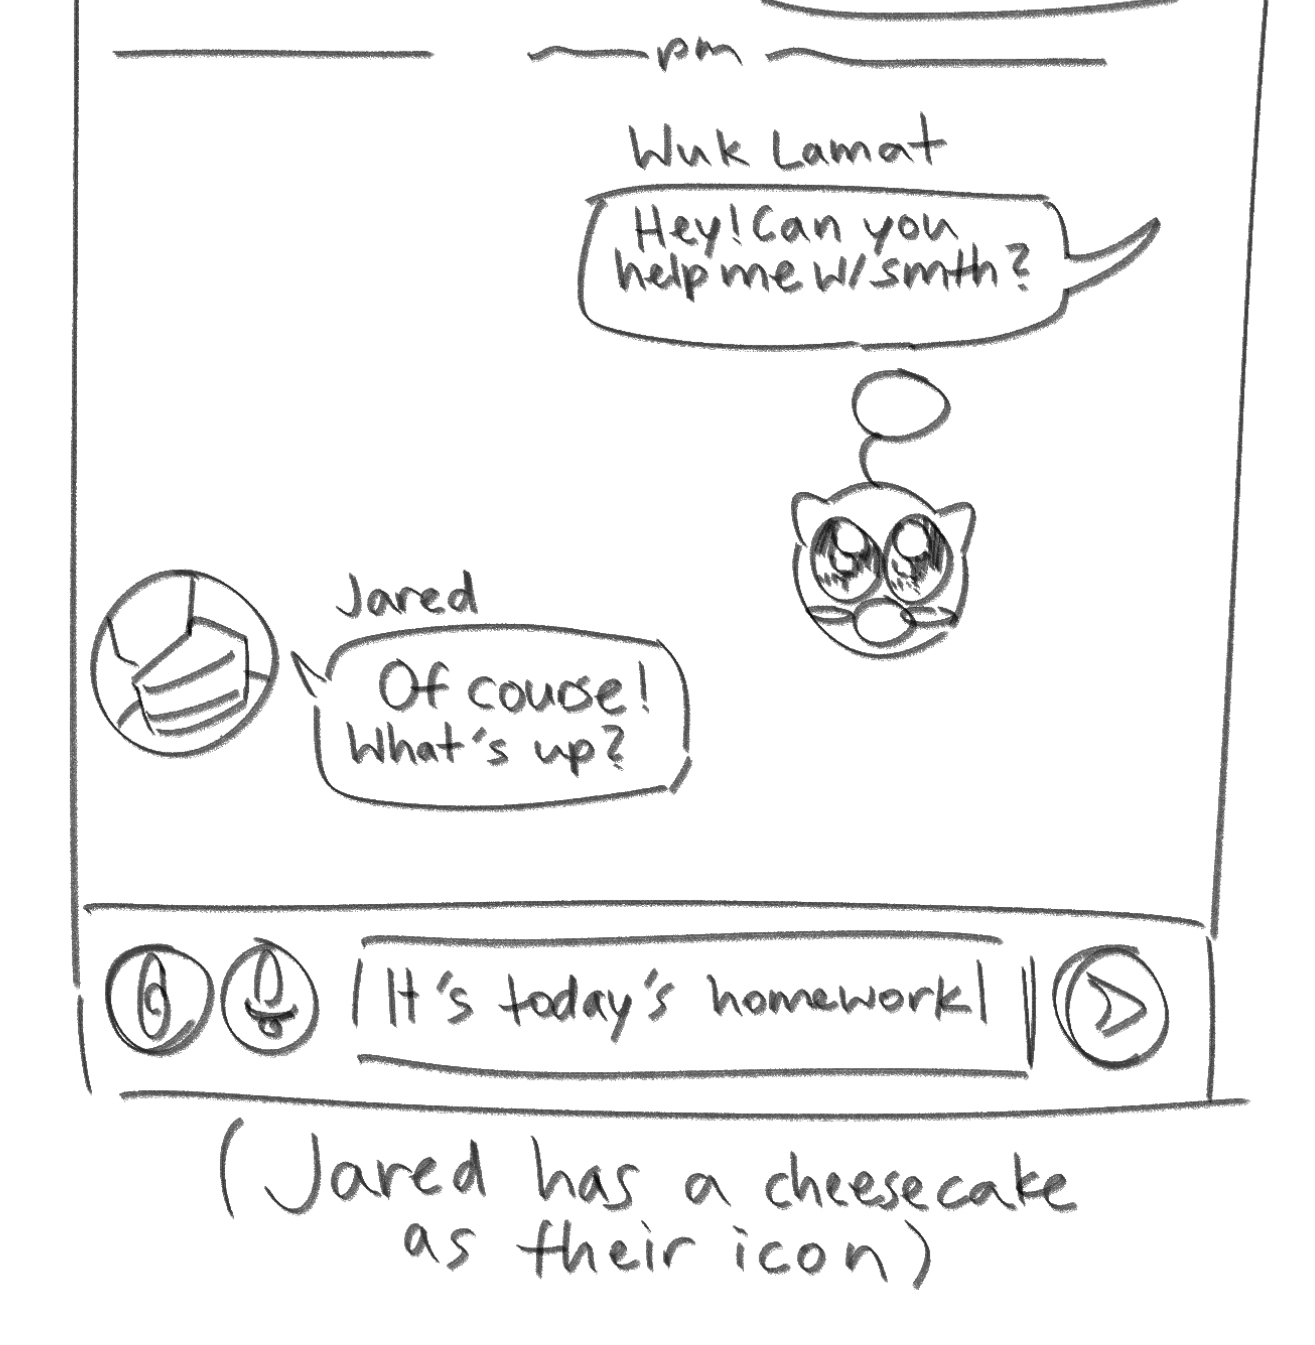 pm
Wuk Lamat
Hey! Can you
help me w/ smth?
Jared
Of course!
What's up?
It's today's homework
(Jared has a cheesecake
as their icon)